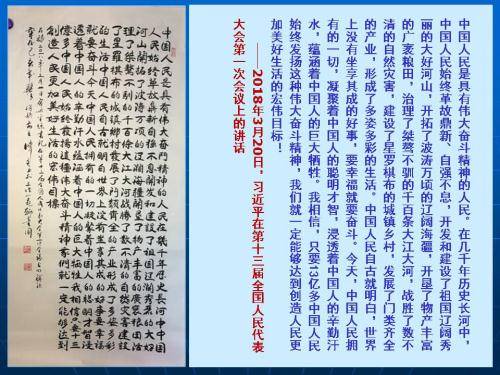 中国人民是具有伟大奋斗精神的人民。在几千年历史长河中，
中国人民始终革故鼎新、自强不息，开发和建设了祖国辽阔秀
丽的大好河山，开拓了波涛万顷的辽阔海疆，开垦了物产丰富
的广袤粮田，治理了桀骜不驯的千百条大江大河，战胜了数不
清的自然灾害，建设了星罗棋布的城镇乡村，发展了门类齐全
的产业，形成了多姿多彩的生活。中国人民自古就明白，世界
上没有坐享其成的好事，要幸福就要奋斗。今天，中国人民拥
有的一切，凝聚着中国人的聪明才智，浸透着中国人的辛勤汗
水，蕴涵着中国人的巨大牺牲。我相信，只要13亿多中国人民
始终发扬这种伟大奋斗精神，我们就一定能够达到创造人民更
加美好生活的宏伟目标！
——2018年3月20日，习近平在第十三届全国人民代表
大会第一次会议上的讲话
中国人民是具有伟大奋斗精神的人民在几千年历史长河中中国
人民始终革故鼎新自强不息开发和建设了祖国辽阔秀丽的大好
河山开拓了波涛万顷的辽阔海疆开垦了物产丰富的广袤粮田治
理了桀骜不驯的千百条大江大河战胜了数不清的自然灾害建设
了星罗棋布的城镇乡村发展了门类齐全的产业形成了多姿多彩
的生活中国人民自古就明白世界上没有坐享其成的好事要幸福
就要奋斗今天中国人民拥有的一切凝聚着中国人的聪明才智浸
透着中国人的辛勤汗水蕴涵着中国人的巨大牺牲我相信只要十三
亿多中国人民始终发扬这种伟大奋斗精神我们就一定能够达到
创造人民更加美好生活的宏伟目标